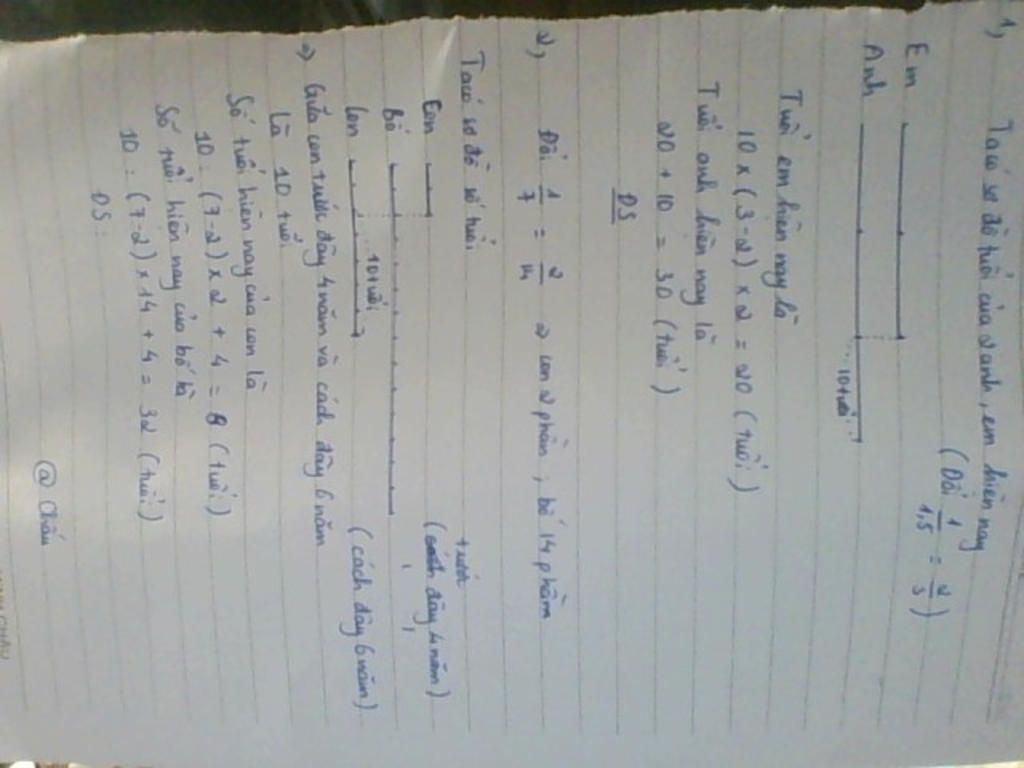 1,
Ta có sơ đồ tuổi của 2 anh, em hiện nay
(Đổi 1/1,5 = 2/3)
Em
Anh
10 tuổi
Tuổi em hiện nay là
10 x (3-2) x 2 = 20 (tuổi)
Tuổi anh hiện nay là
20 + 10 = 30 (tuổi)
ĐS
2,
Đổi 1/7 = 2/14 => con 2 phần; bố 14 phần
Ta có sơ đồ số tuổi
Con (trước đây 4 năm)
Bố
10 tuổi
Con (cách đây 6 năm)
=> Giữa con trước đây 4 năm và cách đây 6 năm
là 10 tuổi
Số tuổi hiện nay của con là
10 : (7-2) x 2 + 4 = 8 (tuổi)
Số tuổi hiện nay của bố là
10 : (7-2) x 14 + 4 = 32 (tuổi)
ĐS:
@ Châu